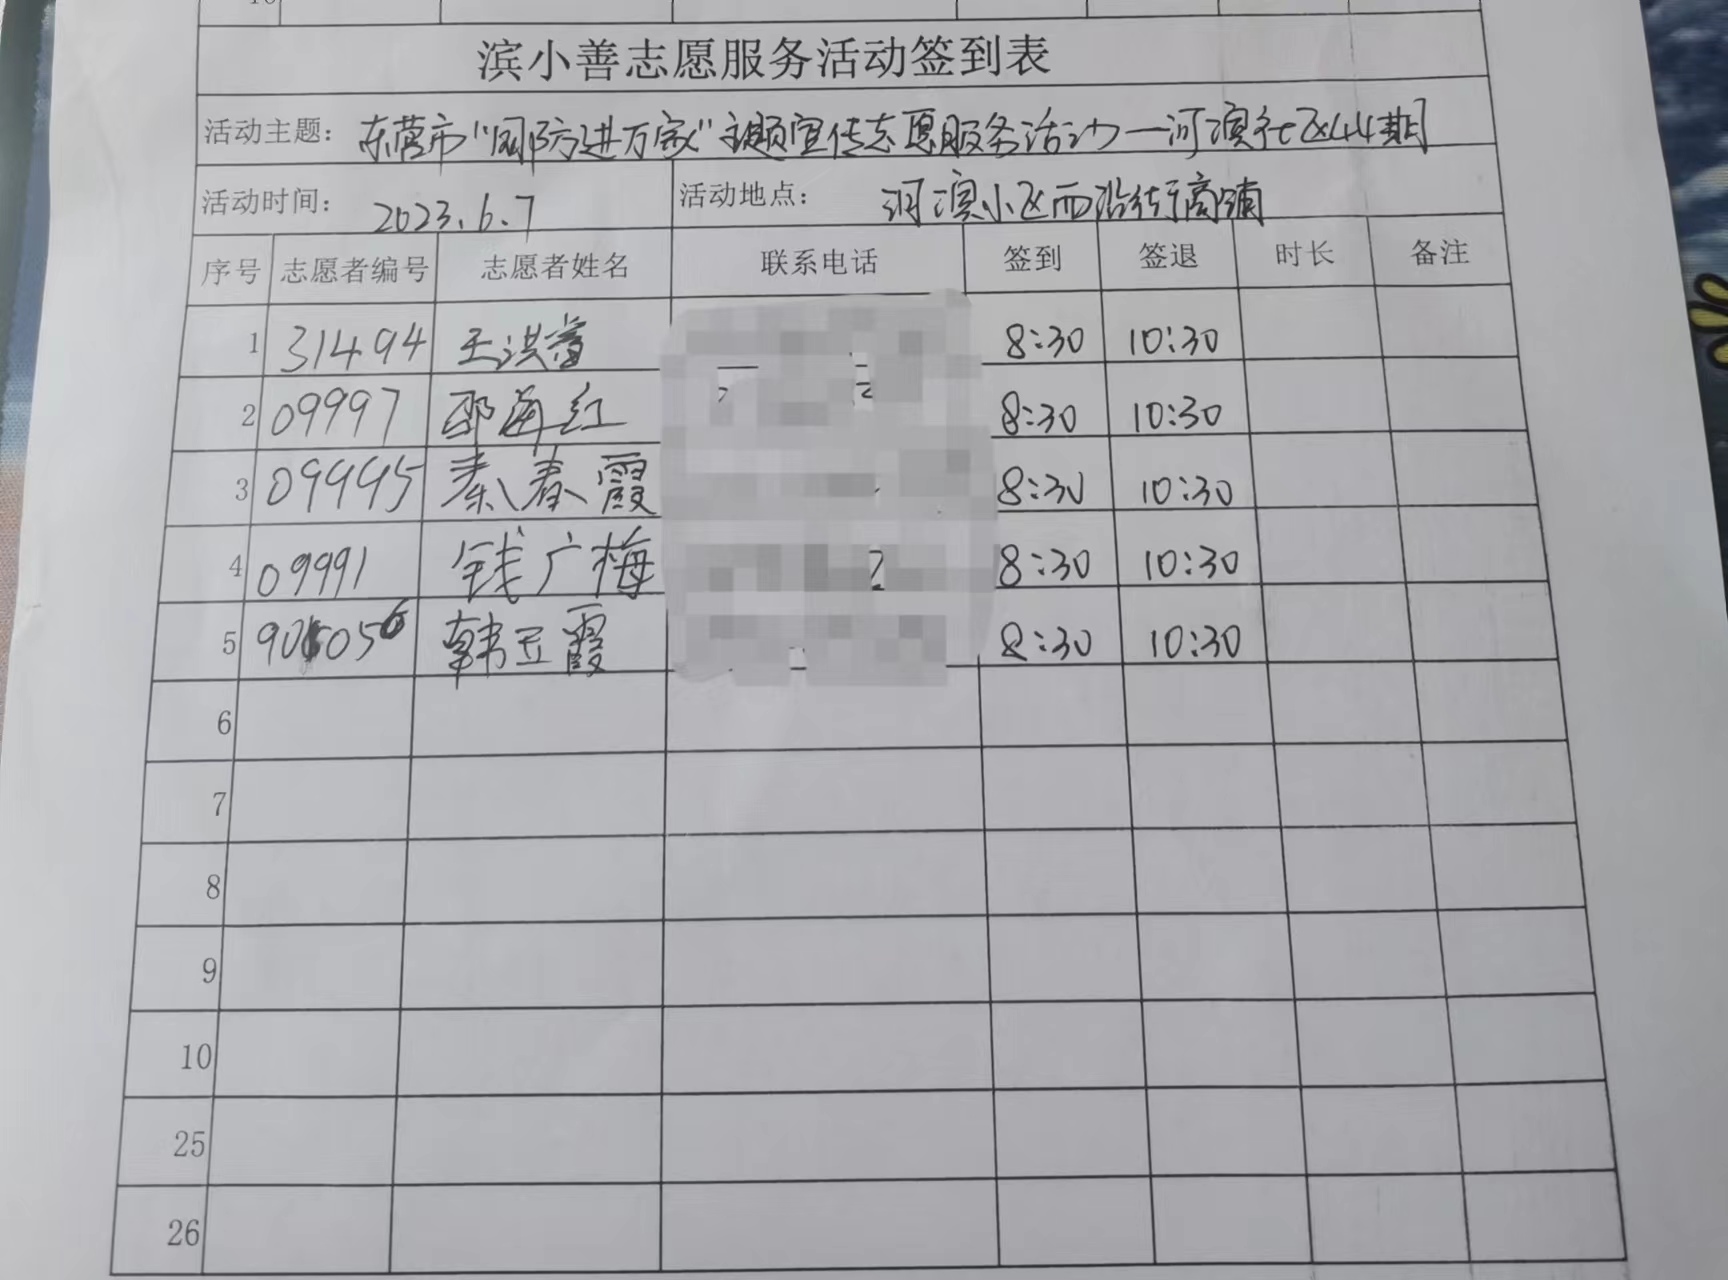 滨小善志愿服务活动签到表
活动主题: 东营市"国防进万家"主题宣传志愿服务活动—河滨社区44期
活动时间: 2023.6.7 活动地点: 河滨小区西沿街商铺
序号 志愿者编号 志愿者姓名 联系电话 签到 签退 时长 备注
1 31494 王洪 8:30 10:30
2 09997 邵海红 8:30 10:30
3 09995 秦春霞 8:30 10:30
4 09991 钱广梅 8:30 10:30
5 韩玉霞 8:30 10:30
6
7
8
9
10
25
26